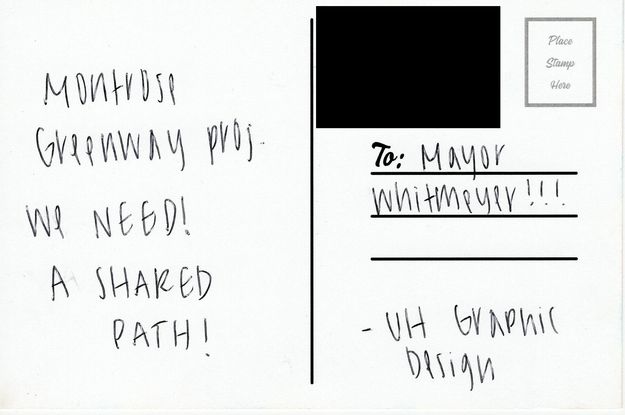 Montrose
Greenway proj.
We NEED!
A SHARED
PATH!
Place
Stamp
Here
To: Mayor
Whitmeyer!!!
- UH Graphic
Design